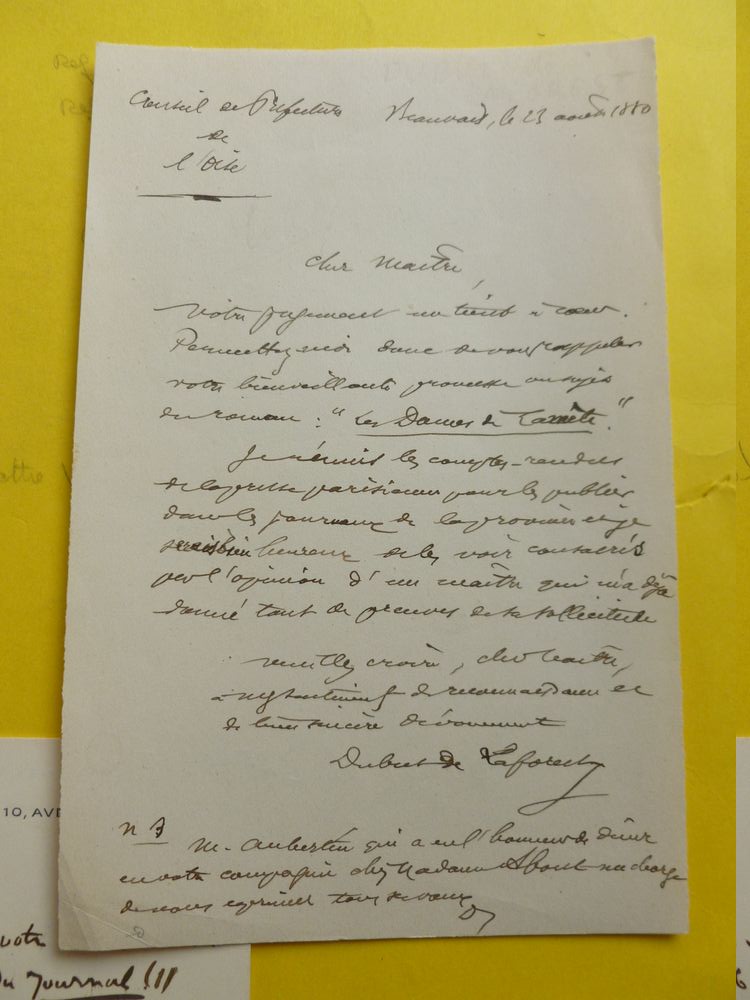 Conseil de Préfecture
de
l'Oise
Beauvais, le 23 août 1880
Cher Maître,
Votre jugement me tient à coeur.
Permettez moi donc de vous rappeler
votre bienveillante promesse au sujet
du roman : "Les Dames de Lamète."
Je réunis les comptes-rendus
de la presse parisienne pour les publier
dans les journaux de la province et je
serais bien heureux de les voir consacrés
par l'opinion d'un maître qui m'a déjà
donné tant de preuves de sa sollicitude
Veuillez croire, cher Maître,
à mes sentiments de reconnaissance et
de bien sincère dévouement
Dubut de Laforest
M. Aubertin qui a eu l'honneur de dîner
en votre compagnie chez Madame About me charge
de vous exprimer tous ses voeux
10, AVE
votre
du Journal !!!